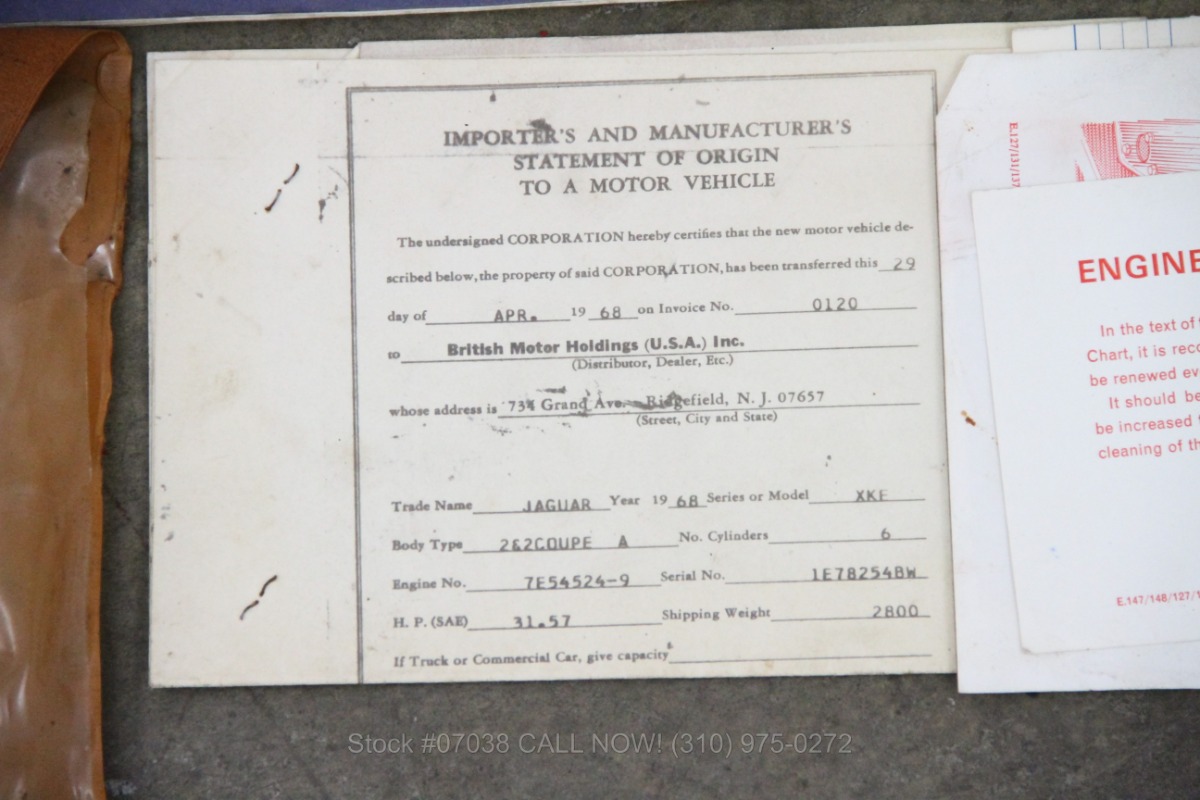 IMPORTER'S AND MANUFACTURER'S
STATEMENT OF ORIGIN
TO A MOTOR VEHICLE
The undersigned CORPORATION hereby certifies that the new motor vehicle de-
scribed below, the property of said CORPORATION, has been transferred this 29
day of APR. 19 68 on Invoice No. 0120
to British Motor Holdings (U.S.A.) Inc.
(Distributor, Dealer, Etc.)
whose address is 734 Grand Ave. Ridgefield, N. J. 07657
(Street, City and State)
Trade Name JAGUAR Year 19 68 Series or Model XKE
Body Type 2&2COUPE A No. Cylinders 6
Engine No. 7E54524-9 Serial No. 1E78254BW
H. P. (SAE) 31.57 Shipping Weight 2800
If Truck or Commercial Car, give capacity
E.127/131/137
ENGINE
In the text of
Chart, it is reco
be renewed ev
It should be
be increased
cleaning of th
E.147/148/127/1
Stock #07038 CALL NOW! (310) 975-0272